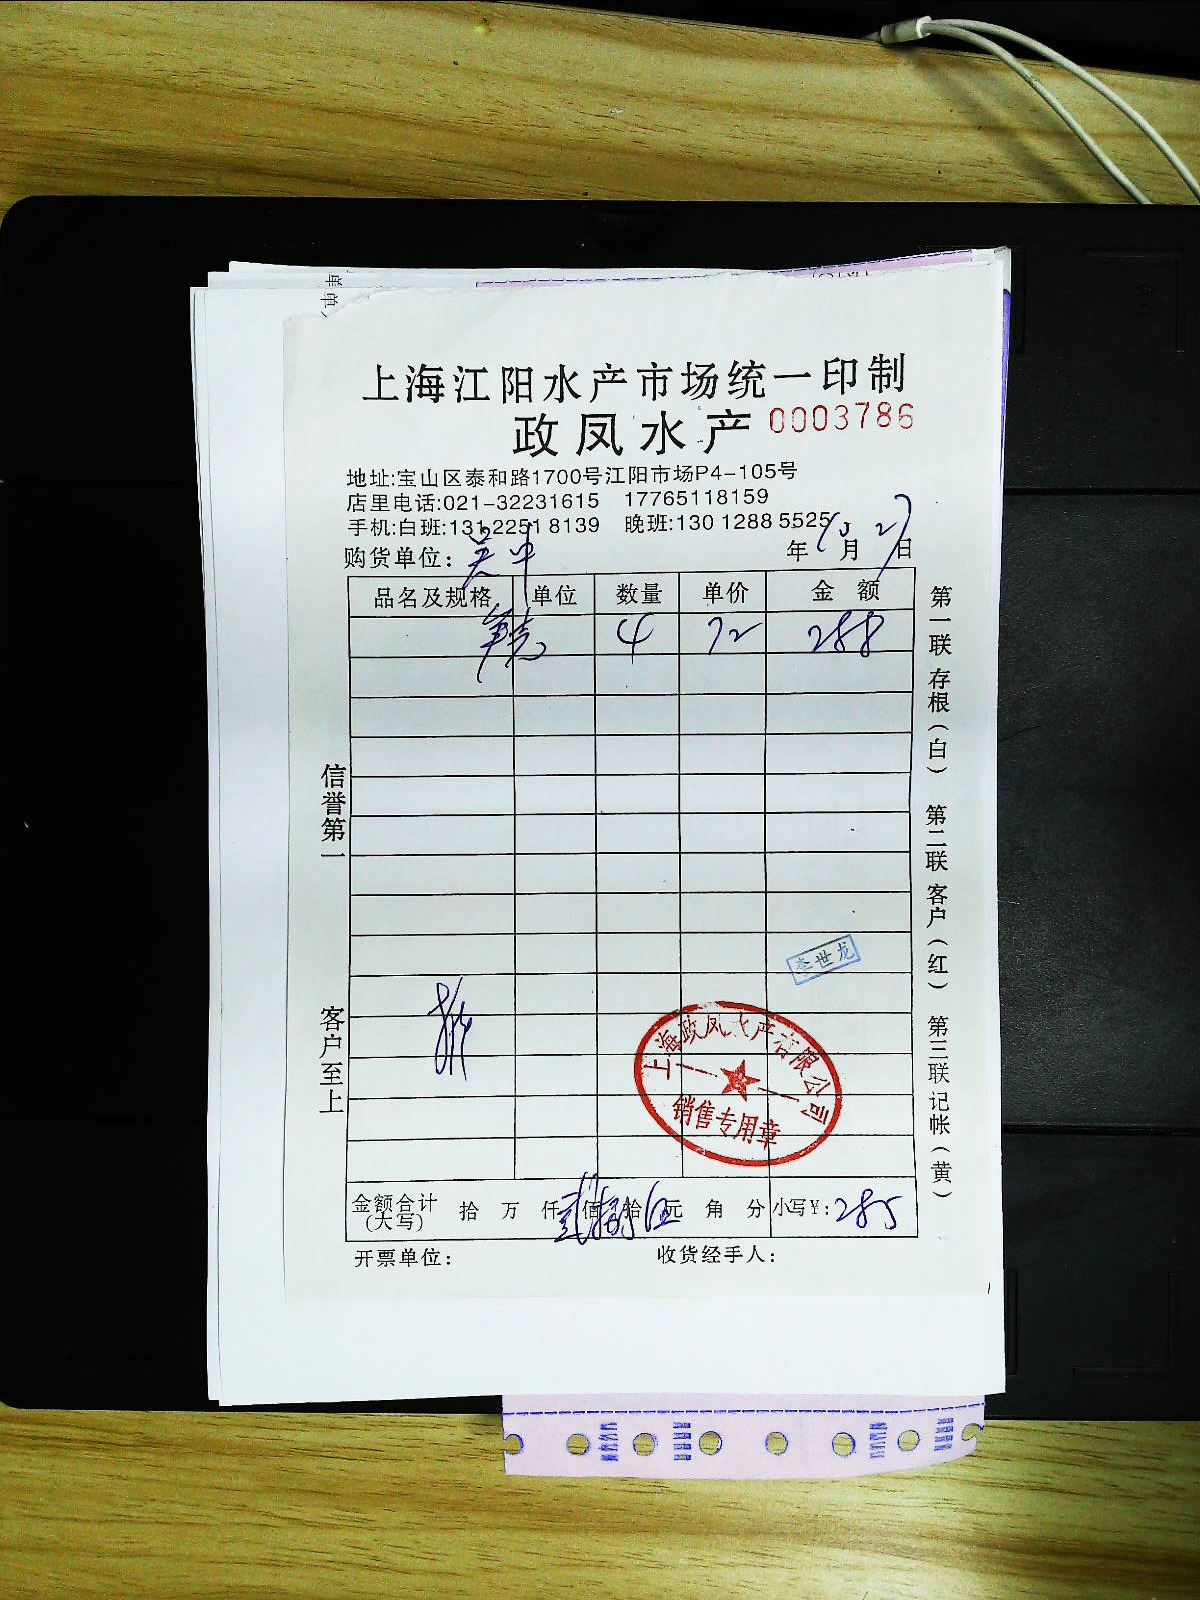 上海江阳水产市场统一印制
政凤水产 0003786
地址:宝山区泰和路1700号江阳市场P4-105号
店里电话:021-32231615 17765118159
手机:白班:131 2251 8139 晚班:130 1288 5525
购货单位: 吴中 年 10 月 27 日
品名及规格 单位 数量 单价 金 额
4 72 288
信誉第一
客户至上
第一联 存根(白) 第二联 客户(红) 第三联 记帐(黄)
李世龙
上海政凤水产有限公司
销售专用章
金额合计(大写) 拾 万 仟 贰 佰 捌 拾 伍 元 角 分 小写¥: 285
开票单位: 收货经手人: